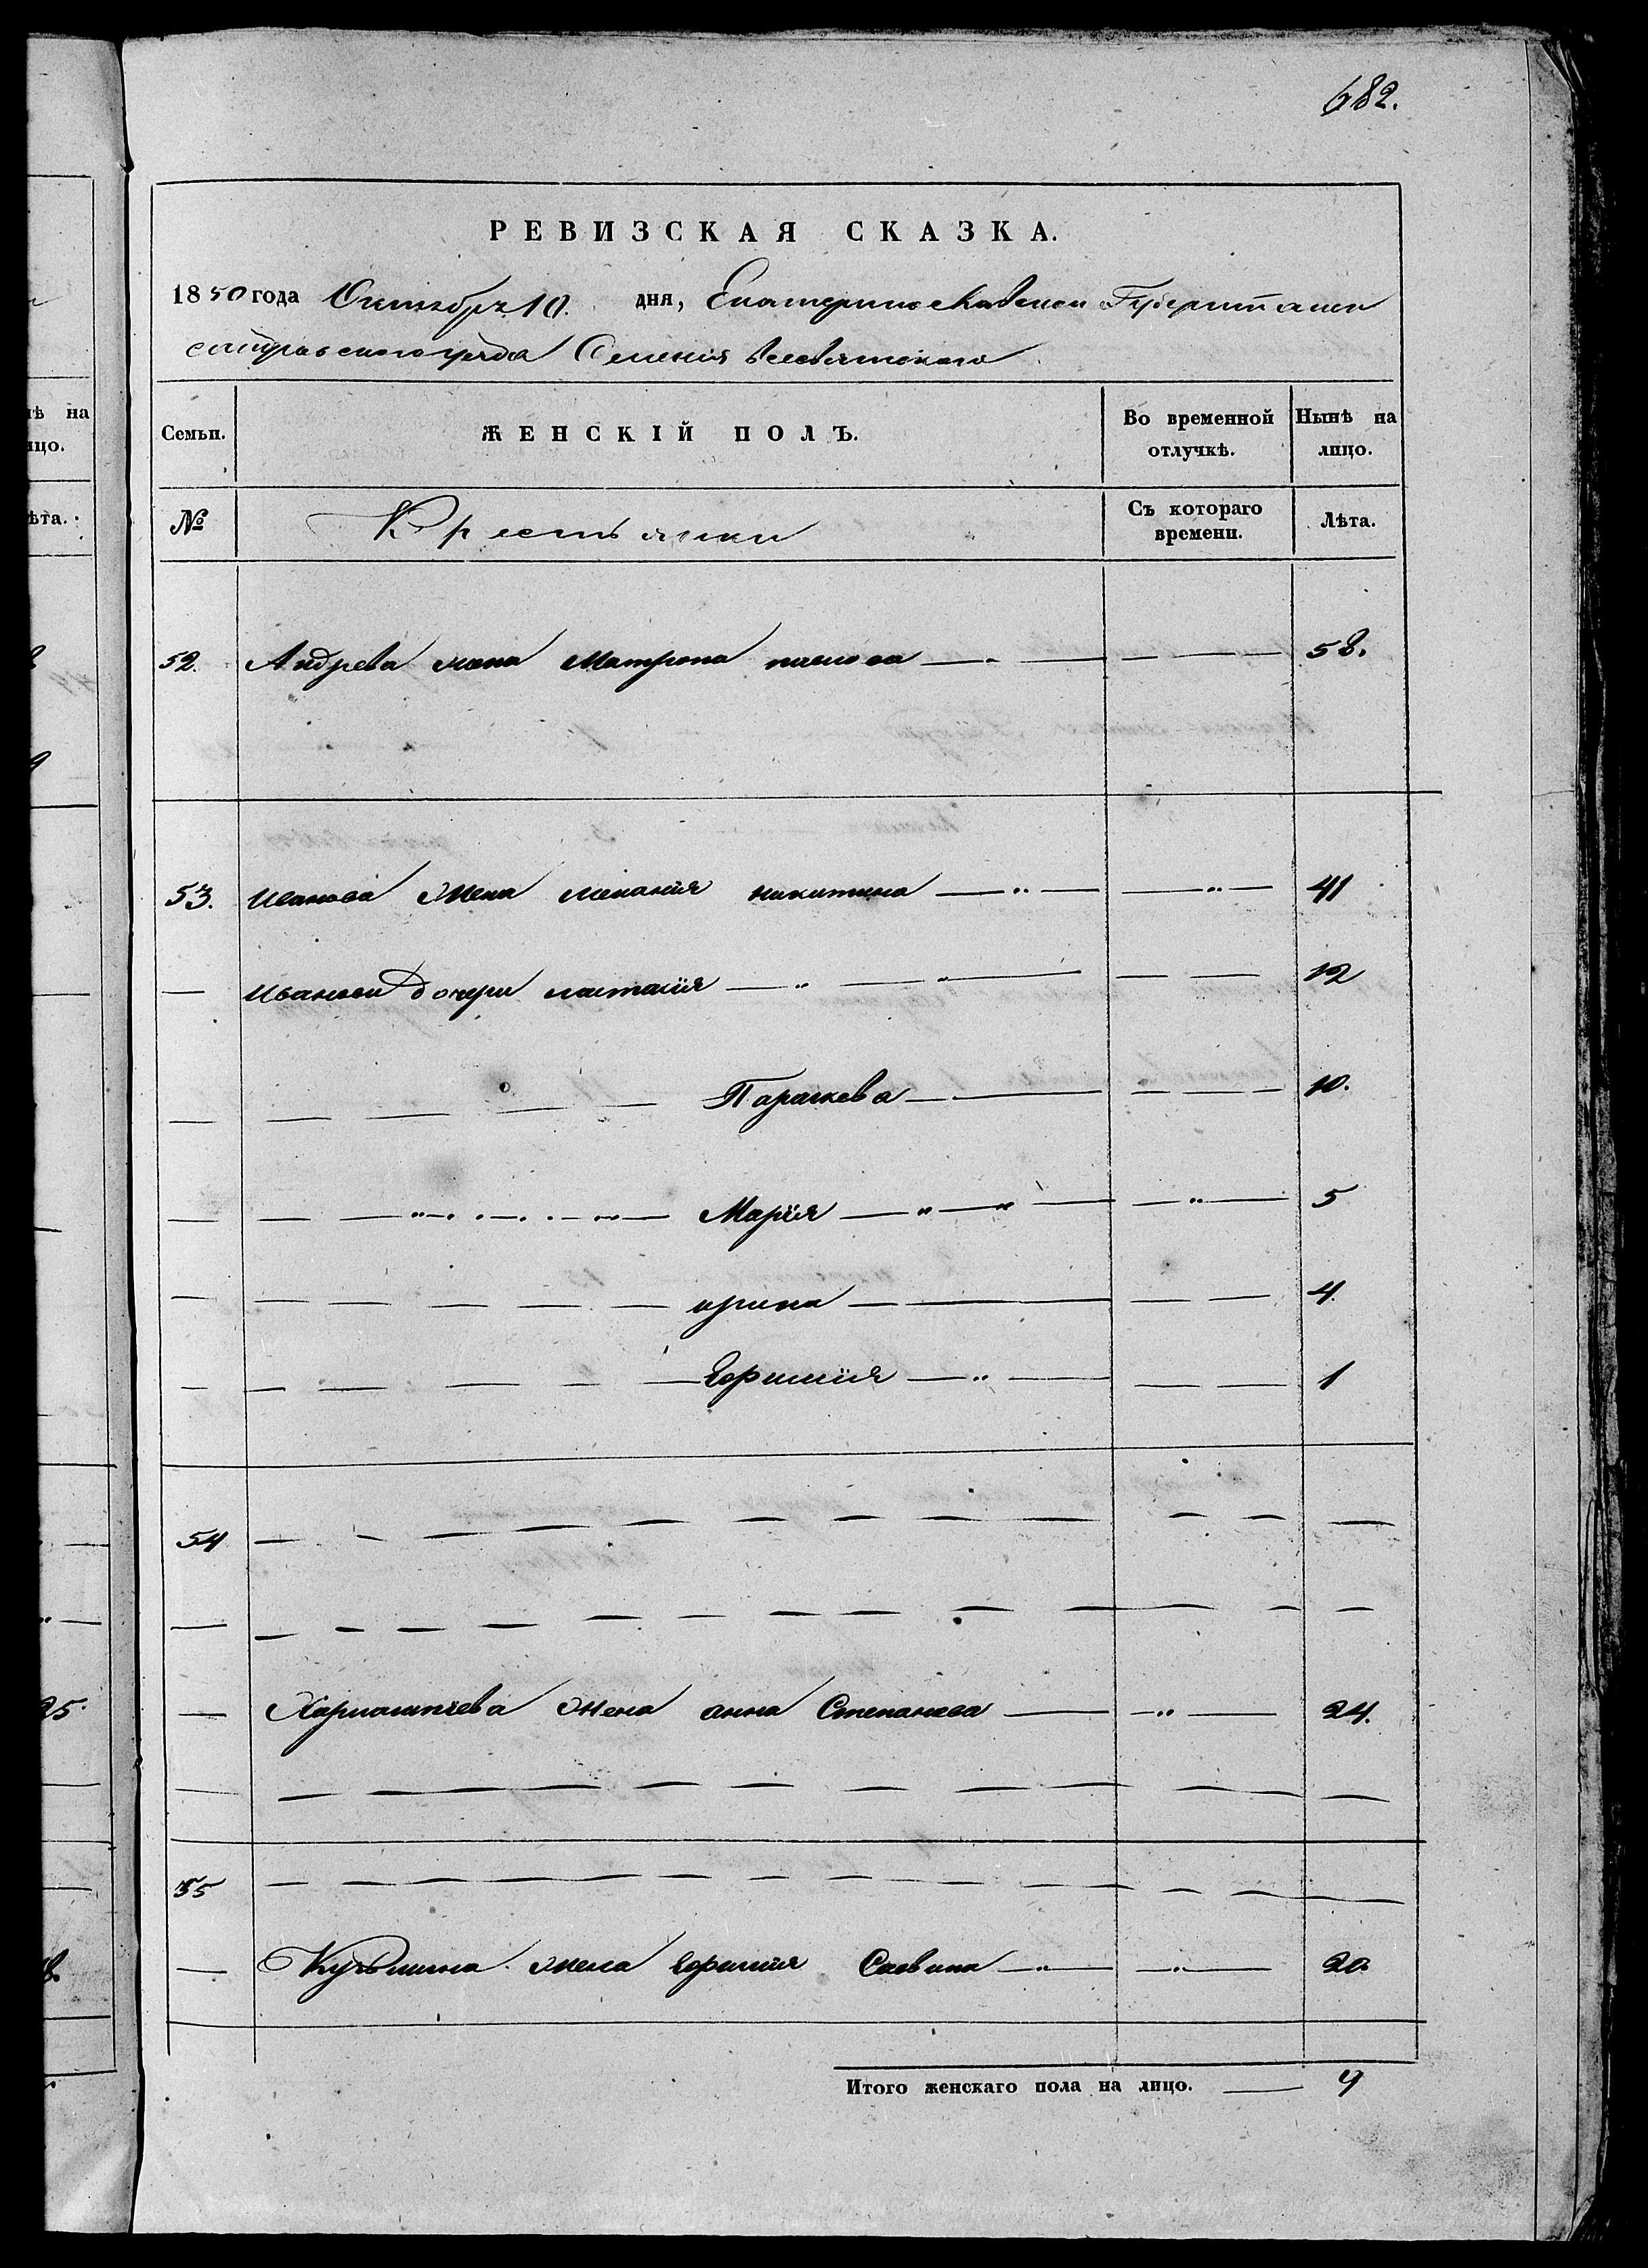 682.
РЕВИЗСКАЯ СКАЗКА.
1850 года Октября 10. дня, Екатеринославской Губернии
уезда Селения Всесвятскаго
Семьи. ЖЕНСКІЙ ПОЛЪ. Во временной отлучкѣ. Нынѣ на лицо.
№ Крестьянки Съ котораго времени. Лѣта.
52. Андрева жена Матрона павлова — 58.
53. Иванова жена меланія никитина — 41
— Ивановы дочери настасія — 12
— Параскева — 10.
— Марія — 5
— ирина — 4.
— Ефимія — 1
54 —
— Харлампіева жена анна Степанова — 24.
55 —
— Кузьмина жена Ефимія Савина — 20.
Итого женскаго пола на лицо. — 9
нѣ на
лицо.
лѣта.
25.